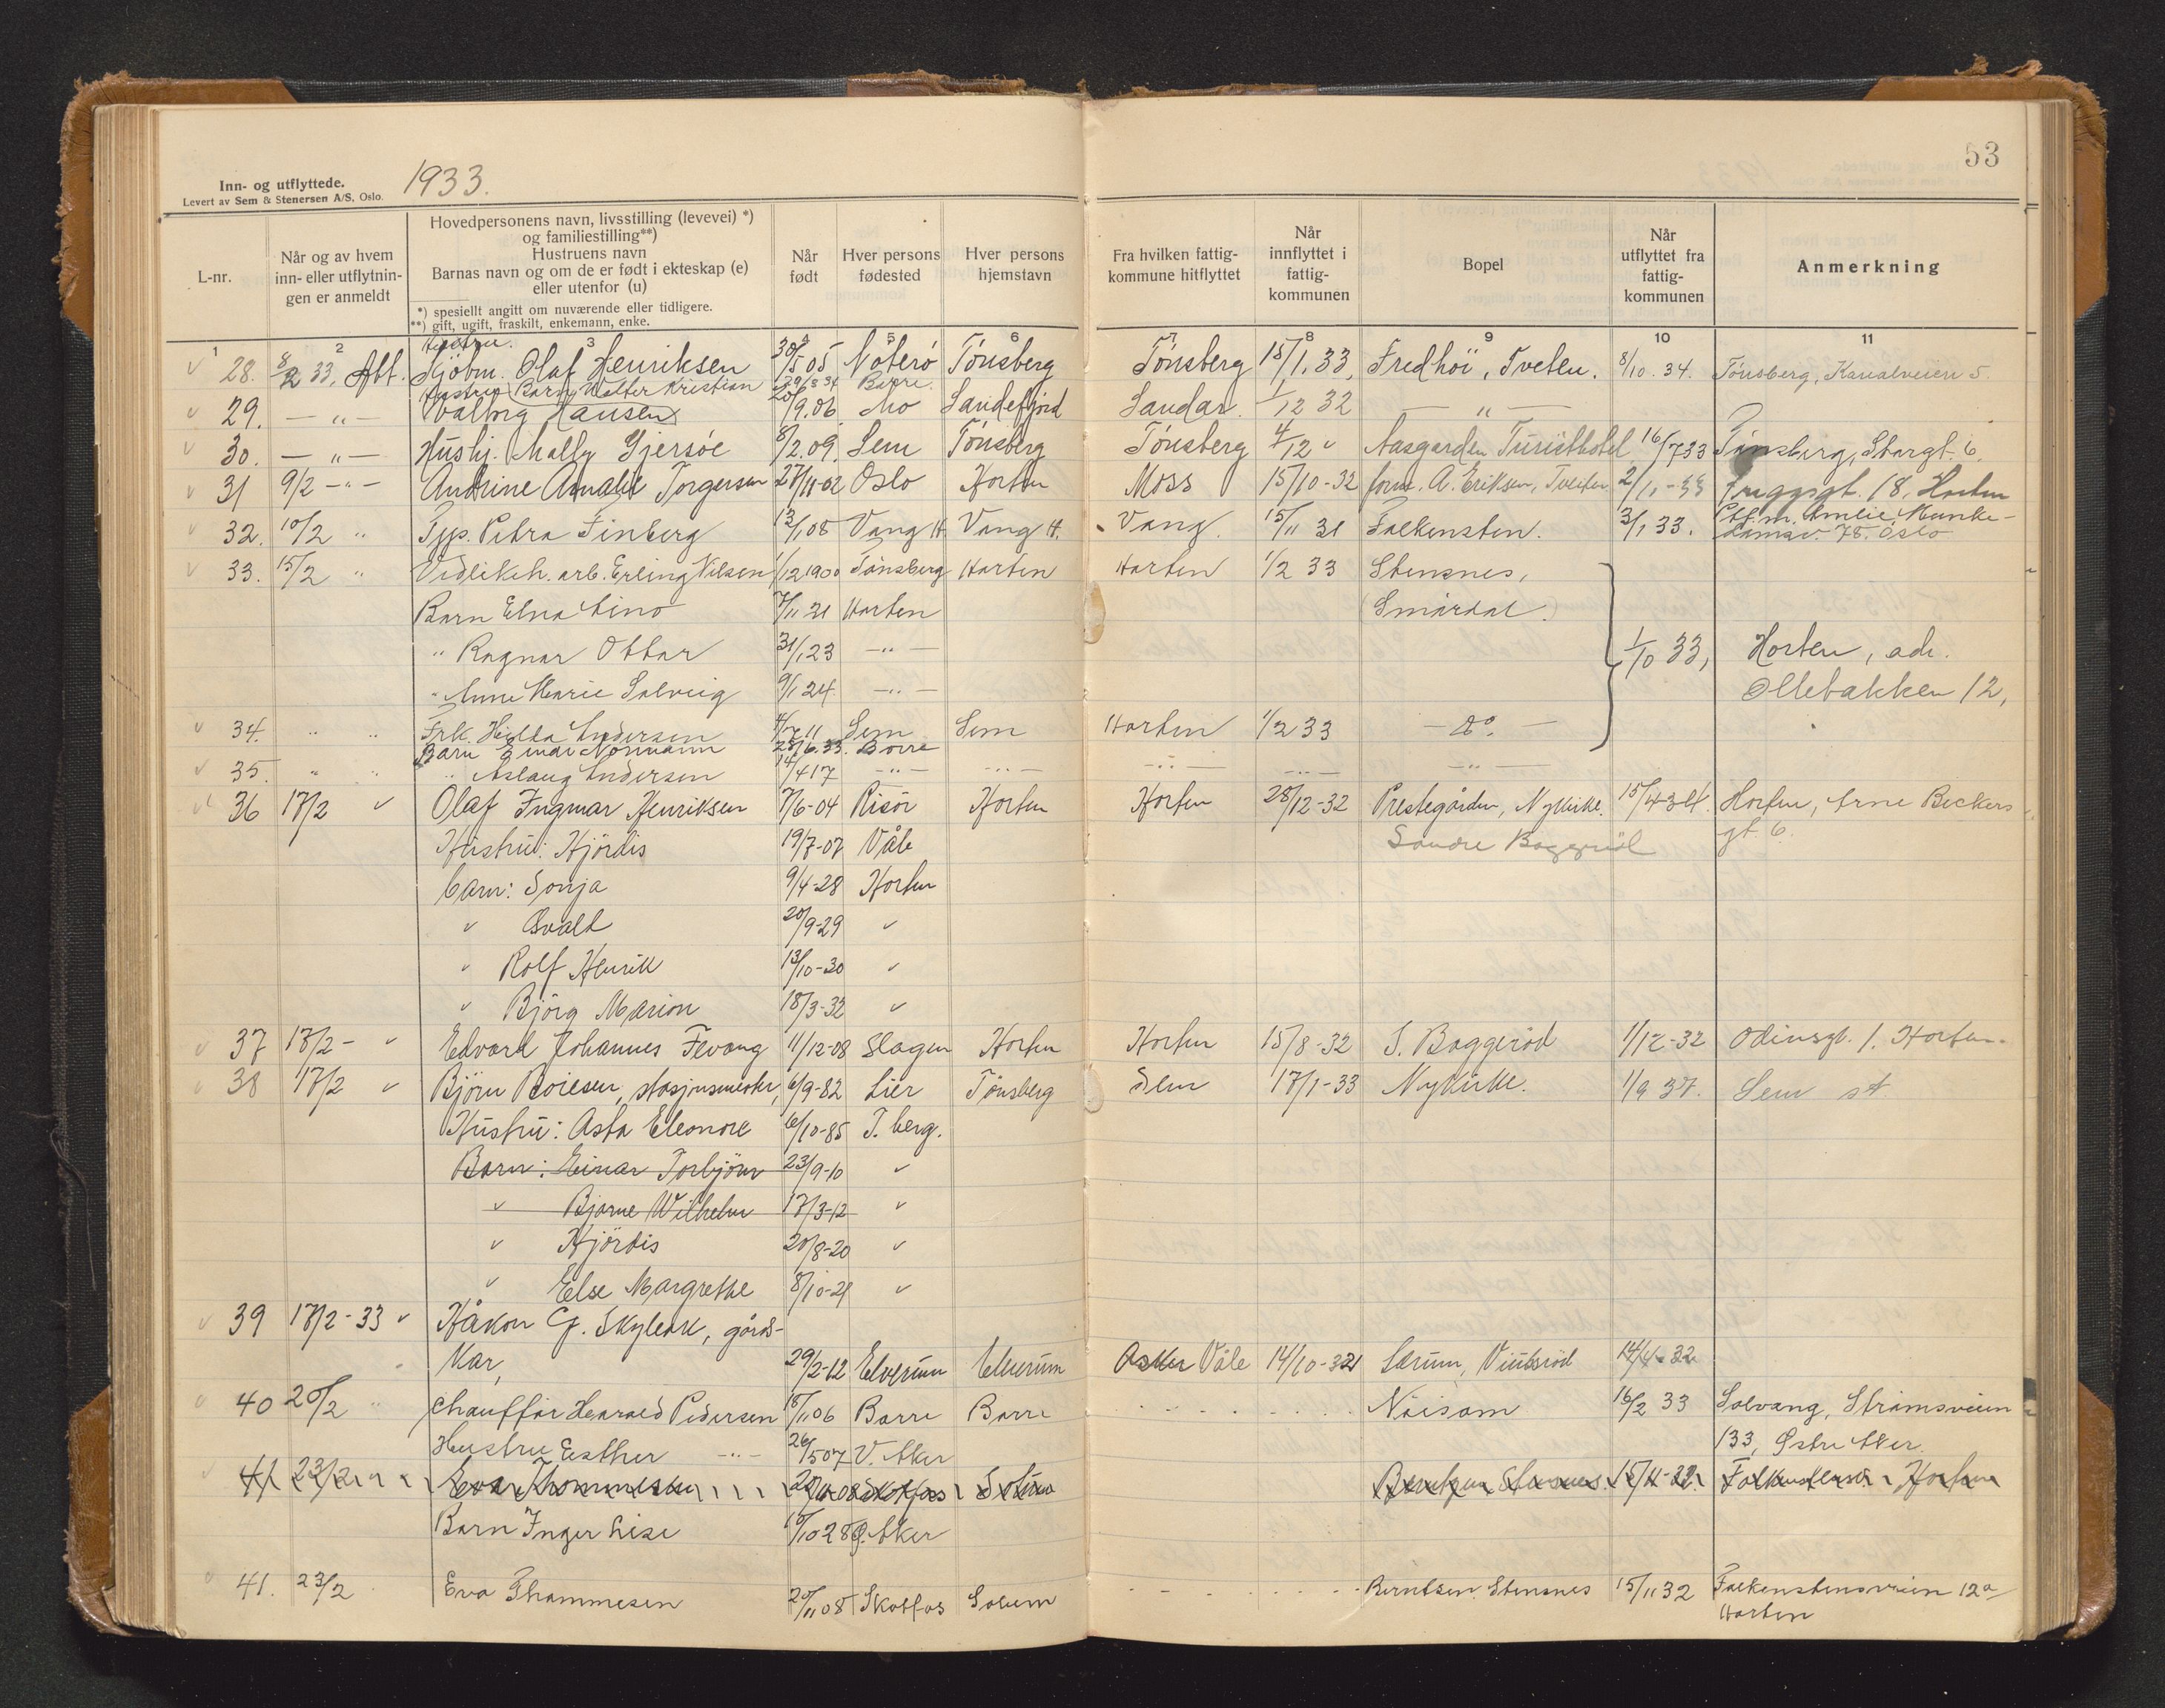 53
Inn- og utflyttede. 1933.
Levert av Sem & Stenersen A/S, Oslo.
L-nr.
Når og av hvem inn- eller utflytnin-gen er anmeldt
Hovedpersonens navn, livsstilling (levevei) *)
og familiestilling**)
Hustruens navn
Barnas navn og om de er født i ekteskap (e)
eller utenfor (u)
*) spesielt angitt om nuværende eller tidligere.
**) gift, ugift, fraskilt, enkemann, enke.
Når født
Hver persons fødested
Hver persons hjemstavn
Fra hvilken fattig-kommune hitflyttet
Når innflyttet i fattig-kommunen
Bopel
Når utflyttet fra fattig-kommunen
Anmerkning
1 2 3 4 5 6 7 8 9 10 11
28. 8/2 33, Olaf Henriksen 30/5 05 Nøterø Tønsberg Tønsberg 15/1.33, Fredhöi, Tveten. 8/10.34. Tønsberg, Kanalveien 5.
Hustru Barn, Walter Kristian Borre.
29. — " — Valborg Hansen 20/9.06 Mo Sandefjord Sandar. 1/12 32 — " —
30. — " — Hushj. Mally Gjersøe 8/2.09. Sem Tönsberg Tönsberg 4/12 " Aasgarden Turisthotel 16/7 33 Tønsberg, Storgt. 6.
31 9/2 - " - Andrine Amalie Torgersen 27/11-02 Oslo Horten Moss 15/10-32 form. A. Eriksen, Tveiten 2/11-33 Friggsgt. 18, Horten
32. 10/2 " Tjp. Petra Finberg 12/1 08 Vang H. Vang H. Vang. 15/11 31 Falkensten. 3/1 33. Munke-
damsv. 78. Oslo
33. 15/2 " Vedlikeh. arb. Erling Nilsen 1/12 1900 Tønsberg Horten Horten 1/2 33 Stensnes,
Barn Elna Lino 7/11 21 Horten (Smørdal.)
" Ragnar Ottar 31/1 23 — " — 1/10 33, Horten, adr.
" Anne Marie Solveig 9/1 24. — " — Ollebakken 12,
34. " " Frk. Hilda Andersen 4/7 11 Sem Sem Horten 1/2 33 — Do. —
Barn Einar Normann 28/6.33. Borre
35. " " " Aslaug Andersen 14/4 17 — " — — " — — " — — " — — " —
36 17/2 " Olaf Ingmar Henriksen 7/6-04 Risör Horten Horten 28/12-32 Prestegården, Nykirke. 15/4-34. Horten, Arne Beckers
Hustru: Hjördis 19/7-07 Våle Søndre Baggerød gt. 6.
barn: Sonja 9/4-28 Horten
" Osvald 20/9-29 "
" Rolf Henrik 13/10-30 "
" Björg Marion 18/3-32 "
37 17/2 - " Edvard Johannes Fevang 11/12-08 Slagen Horten Horten 15/8-32 S. Baggeröd 1/12-32 Odinsgt. 1. Horten.
38 17/2 " Björn Boiesen, stasjonsmester, 6/9-82 Lier Tönsberg Sem 17/1-33 Nykirke. 1/9 37. Sem st
Hustru: Asta Eleonore 6/10-85 T. berg.
Barn: Einar Torbjörn 23/9-10 "
" Bjarne Wilhelm 17/3-12 "
" Hjördis 20/8-20 "
" Else Margrethe 8/10-21 "
39 17/2-33 " Håkon G. Skylead, gårds-
kar, 29/2-12 Elverum Elverum Asker Våle 14/10-321 Sørum, Vintsröd 14/4-32
40 20/2 " Chauffør Harald Pedersen 18/11 06 Borre Borre Nøisom 16/2 33 Solvang, Strømsveien
Hustru Esther — " — 26/5 07 V. Aker 133, Østre Aker.
41 23/2 " Eva Thommesen 20/11-08 Skotfos Solum Berntsen Stensnes 15/11-32 Horten
Barn Inger Lise /10 28 Ø. Aker
41. 23/2 Eva Thommesen 20/11 08 Skotfos Solum Berntsen. Stensnes 15/11 32 Falkenstensveien 12a
Horten